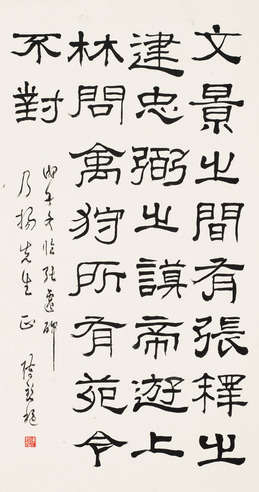 文景之間有張釋之
建忠弼之謨帝遊上
林問禽狩所有苑令
不對
丙午冬臨張遷碑
乃揚先生正